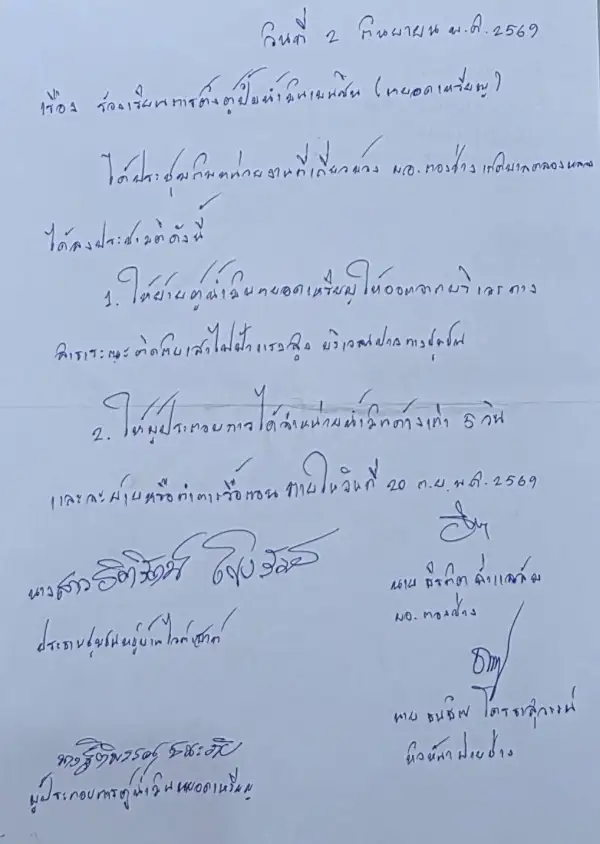 วันที่ 2 กันยายน พ.ศ. 2569
เรื่อง ร้องเรียนการตั้งตู้ปั๊มน้ำมันเบนซิน (หยอดเหรียญ)
ได้ประชุมกับหน่วยงานที่เกี่ยวข้อง ผอ.กองช่าง เทศบาลคลองหลวง
ได้ลงประชามติดังนี้
1. ให้ย้ายตู้น้ำมันหยอดเหรียญให้ออกจากบริเวณทาง
สาธารณะติดกับเสาไฟฟ้าแรงสูง บริเวณปากทางชุมชน
2. ให้ผู้ประกอบการได้จำหน่ายน้ำมันค้างเก่า 5 วัน
และจะย้ายหรือทำการรื้อถอน ภายในวันที่ 20 ก.ย. พ.ศ. 2569
นางสาว
นาย
ผอ.กองช่าง
ประธานชุมชนหมู่บ้าน
นาย
หัวหน้าฝ่ายช่าง
ผู้ประกอบการตู้น้ำมันหยอดเหรียญ